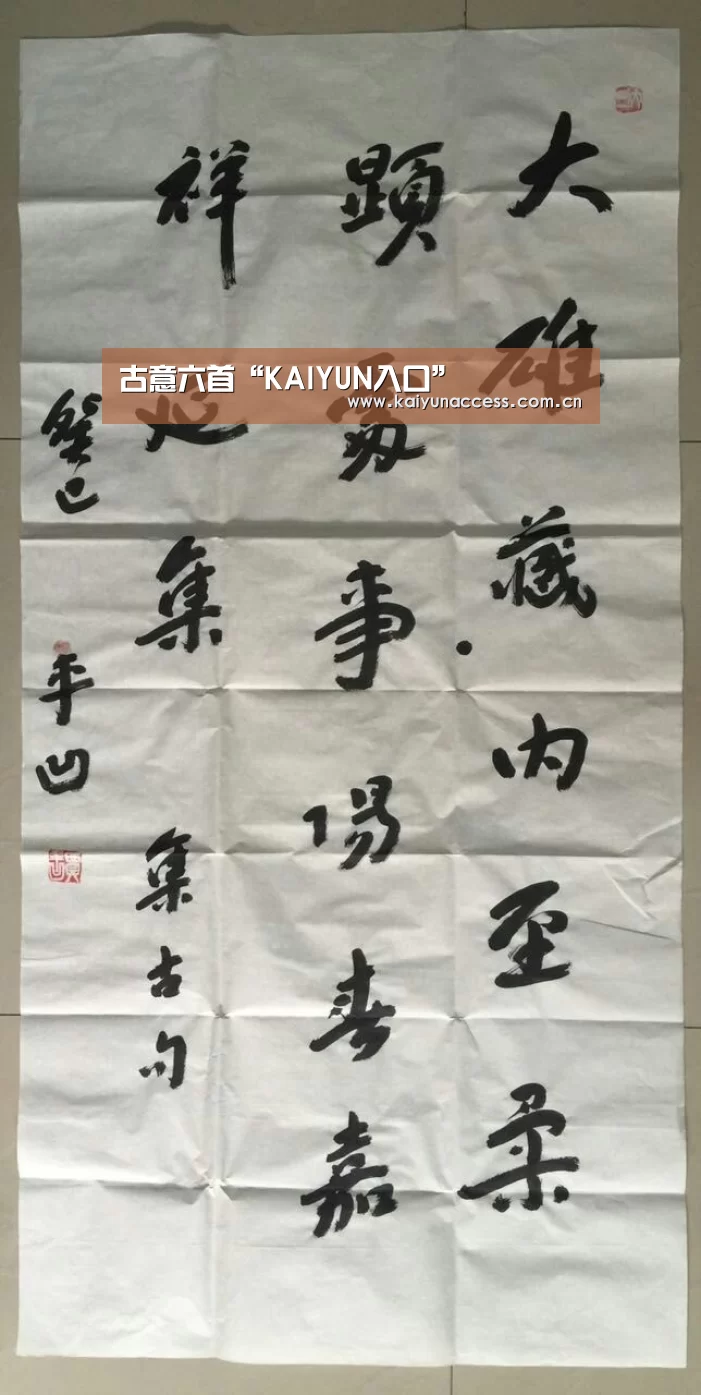 大雄藏内至柔
顕事陽春嘉
祥延集 集古句
癸巳 平凹
古意六首“KAIYUN入口”
www.kaiyunaccess.com.cn